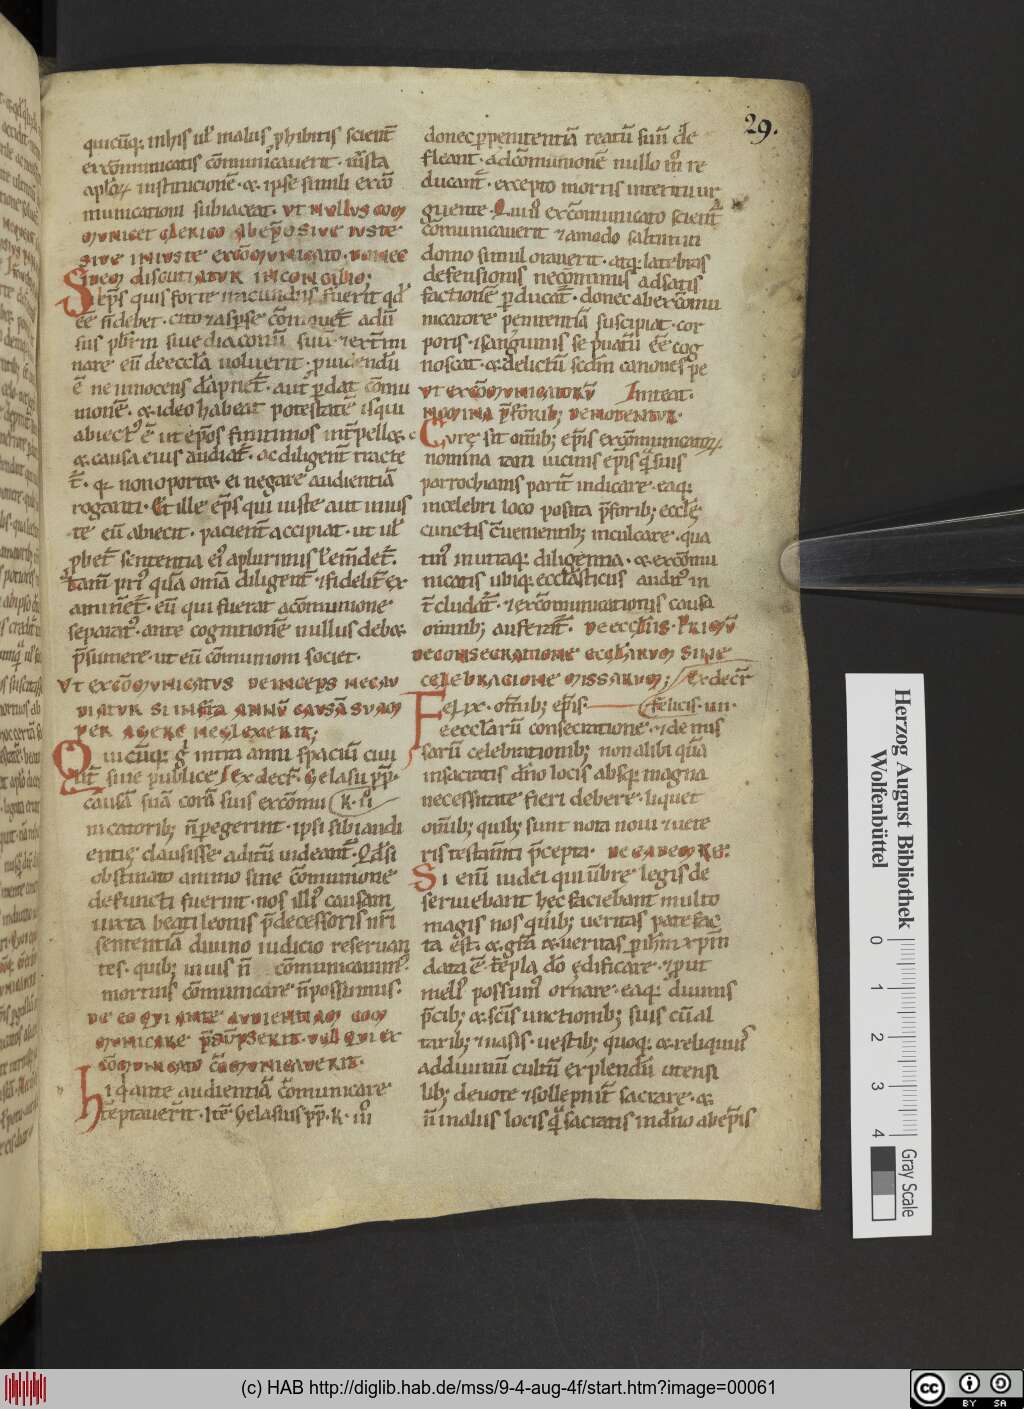 29.
quicūq; inhis ul malis ꝓhibitis scient̄
excōmunicatis cōmunicauerit · iusta
aplōꝝ institucionē · & ipse simili excō
municationi subiaceat · ut nullus com
municet clerico abep̄o siue iuste
siue iniuste excōmunicato · donec
idem discutiatur inconcilio;
Si ep̄s quis forte iracundus fuerit qd̄
eē n̄ debet · cito & aspere cōmouet̄ adū
sus pbrm̄ siue diaconū suū · & ext̄mi
nare eū deecclā uoluerit · puidendū
ē ne innocens dāpnet̄ · aut pdat cōmu
nionē · & ideo habeat potestatē isqui
abiect' ē ut ep̄os finitimos int̄pellet
& causa eius audiat̄ · ac diligent̄ tracte
t̄ · q non oportet ei negare audientiā
roganti · Et ille ep̄s qui iuste aut inius
te eū abiecit · pacient̄ accipiat · ut ul
pbet̄ sententia ei' aplurimis l' emdet̄ ·
tam̄ pri' quā omīa diligent̄ & fidelit̄ ex
aminet̄ · eū qui fuerat acōmunione
separat' · ante cognitionē nullus debet
p̄sumere · ut eū cōmunioni societ ·
Vt excōmunicatus deinceps necau
diatur si infra annū causā suam
per agere neglexerit;
Quicūq; g intra anni spaciū ciui
lit̄ siue publice / Ex decr̄ · Gelasii pp̄ ·
causā suā corā suis excōmu (k · li
nicatorib; n̄ pegerint · ipsi sibi audi
entię clausisse aditū uideant̄ · Qd̄ si
obstinato animo sine cōmunione
defuncti fuerint · nos illi' causam
iuxta beati leonis p̄decessoris nr̄i
sententiā diuino iudicio reseruan
tes · quib; uiuis n̄ cōmunicauim' ·
mortuis cōmunicare n̄ possumus ·
De eo qui ante audientiam com
municare p̄sūpserit · uel qui ex
cōmunicato cōmunicauerit ·
hi q ante audientiā cōmunicare
tēptauerit · Itē Gelasius pp̄ · k · iii
donec p penitentiā reatū suū de
fleant · ad cōmunionē nullo m̄ re
ducant̄ · excepto mortis interitu ur
guente · Qui u excōmunicato scient̄
cōmunicauerit & amodo saltim in
domo simul orauerit · atq; latebras
defensionis necominus adsatis
factionē pducat̄ · donec abexcōmu
nicatore penitentiā suscipiat · cor
poris · & sanguinis se priuatū eē cog
noscat · & delictū scd̄m canones pe
niteat · Vt excōmunicatorū
nomina p̄forib; denotentur ·
Curę sit omīb; ep̄is excōmunicatoꝝ
nomina tam uicinis ep̄is q̄ suis
parrochianis parit̄ indicare · eaq;
incelebri loco posita p̄forib; ecclę
cunctis cuenientib; inculcare · qua
tin' inutraq; diligentia · & excōmu
nicatis ubiq; ecclāsticus aditus in
t̄cludat̄ · & excōmunicationis causa
omnib; auferat̄ · De ecclīis · Primū
deconsecratione ecclārum siue
celebracione missarum; / Ex decr̄
Felix · omīb; ep̄is · — felicis · iiii ·
De ecclarū consecratione · & de mis
sarū celebrationib; non alibi quā
insacratis dn̄o locis absq; magna
necessitate fieri debere · liquet
omīb; quib; sunt nota noui & uete
ris testam̄ti p̄cepta · De eadem re:
Si enī iudei qui ūbre legis de
seruiebant hec faciebant multo
magis nos quib; ueritas patefac
ta est · & gr̄a & ueritas p ihm xpm
data ē · tēpla dō ędificare · & put
meli' possum' ornare · eaq; diuinis
p̄cib; & scīs unctionib; suis cū al
tarib; & uasis · uestib; quoq; & reliquis
addiuinū cultū explendū utensi
lib; deuote & sollepnit̄ sacrare · &
n̄ inaliis locis q̄ sacratis indn̄o abep̄is
Herzog August Bibliothek
Wolfenbüttel
0 1 2 3 4
Gray Scale
(c) HAB http://diglib.hab.de/mss/9-4-aug-4f/start.htm?image=00061
cc BY SA